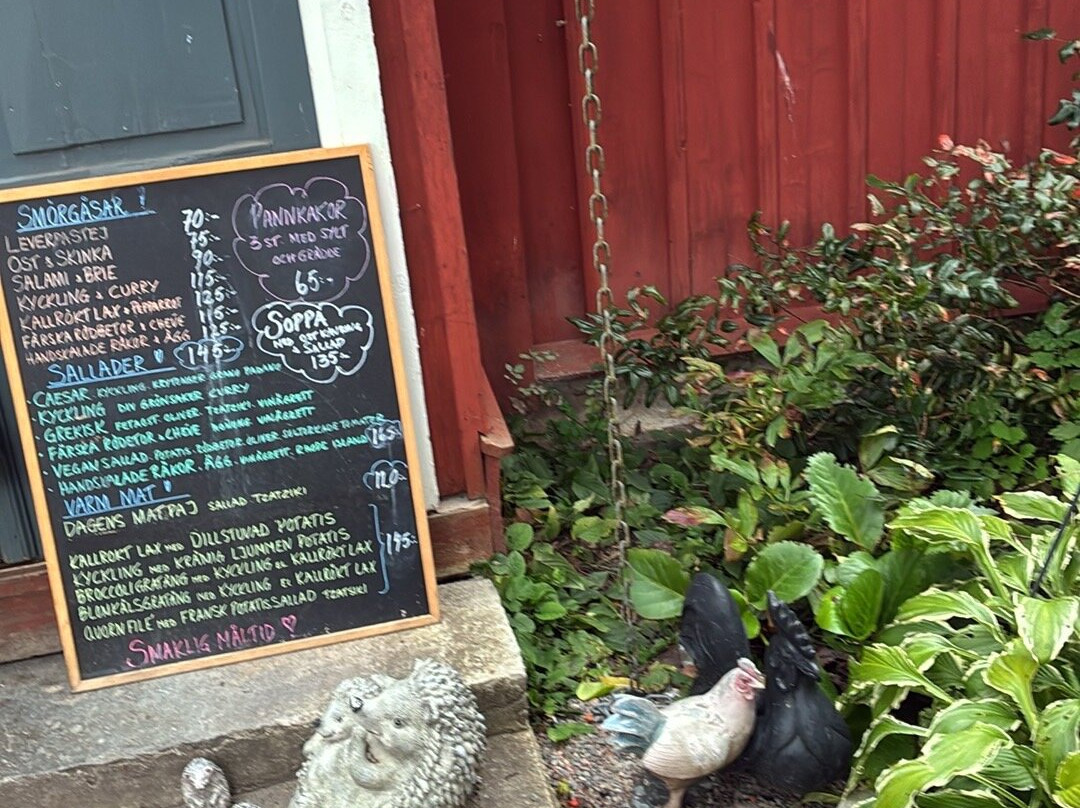 SMÖRGÅSAR !
LEVERPASTEJ 70:-
OST & SKINKA 75:-
SALAMI & BRIE 90:-
KYCKLING & CURRY 115:-
KALLRÖKT LAX & PEPPARROT 125:-
FÄRSKA RÖDBETOR & CHÉVE 115:-
HANDSKALADE RÄKOR & ÄGG 125:-
PANNKAKOR
3 ST. MED SYLT
OCH GRÄDDE
65:-
SOPPA
MED OST
& SALLAD
135:-
SALLADER 145:-
· CAESAR KYCKLING. KRUTONGER GRANA PADANO
· KYCKLING DIV GRÖNSAKER CURRY
· GREKISK FETAOST OLIVER TZATZIKI VINÄGRETT
· FÄRSKA RÖDBETOR & CHÉVE HONUNG VINÄGRETT
· VEGAN SALLAD. POTATIS. RÖDBETOR. OLIVER. SOLTORKADE TOMATER
· HANDSKALADE RÄKOR. ÄGG. VINÄGRETT. RHODE ISLAND 165:-
VARM MAT !
DAGENS MATPAJ SALLAD TZATZIKI 120:-
KALLRÖKT LAX MED DILLSTUVAD POTATIS
KYCKLING MED KRÄMIG LJUMMEN POTATIS
BROCCOLIGRATÄNG MED KYCKLING EL KALLRÖKT LAX
BLOMKÅLSGRATÄNG MED KYCKLING EL KALLRÖKT LAX
QUORNFILÉ MED FRANSK POTATISSALLAD TZATZIKI
145:-
SMAKLIG MÅLTID ♡